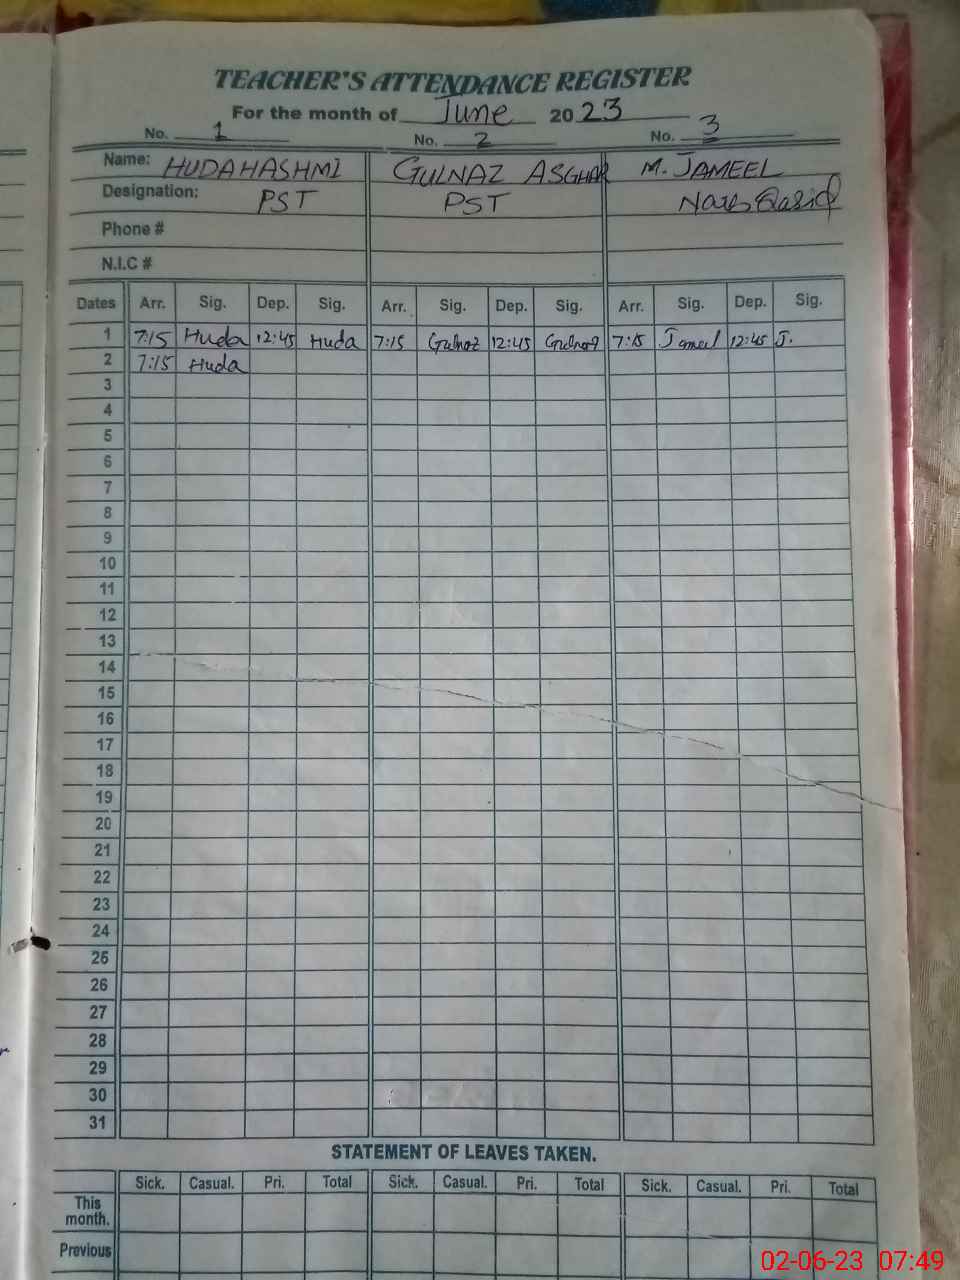 TEACHER'S ATTENDANCE REGISTER
For the month of June 2023
No. 1 No. 2 No. 3
Name: HUDA HASHMI GULNAZ ASGHAR M. JAMEEL
Designation: PST PST Naib Qasid
Phone #
N.I.C #
Dates Arr. Sig. Dep. Sig. Arr. Sig. Dep. Sig. Arr. Sig. Dep. Sig.
1 7:15 Huda 12:45 Huda 7:15 Gulnaz 12:45 Gulnaz 7:15 Jameel 12:45 J.
2 7:15 Huda
3
4
5
6
7
8
9
10
11
12
13
14
15
16
17
18
19
20
21
22
23
24
25
26
27
28
29
30
31
STATEMENT OF LEAVES TAKEN.
Sick. Casual. Pri. Total Sick. Casual. Pri. Total Sick. Casual. Pri. Total
This month.
Previous
02-06-23 07:49